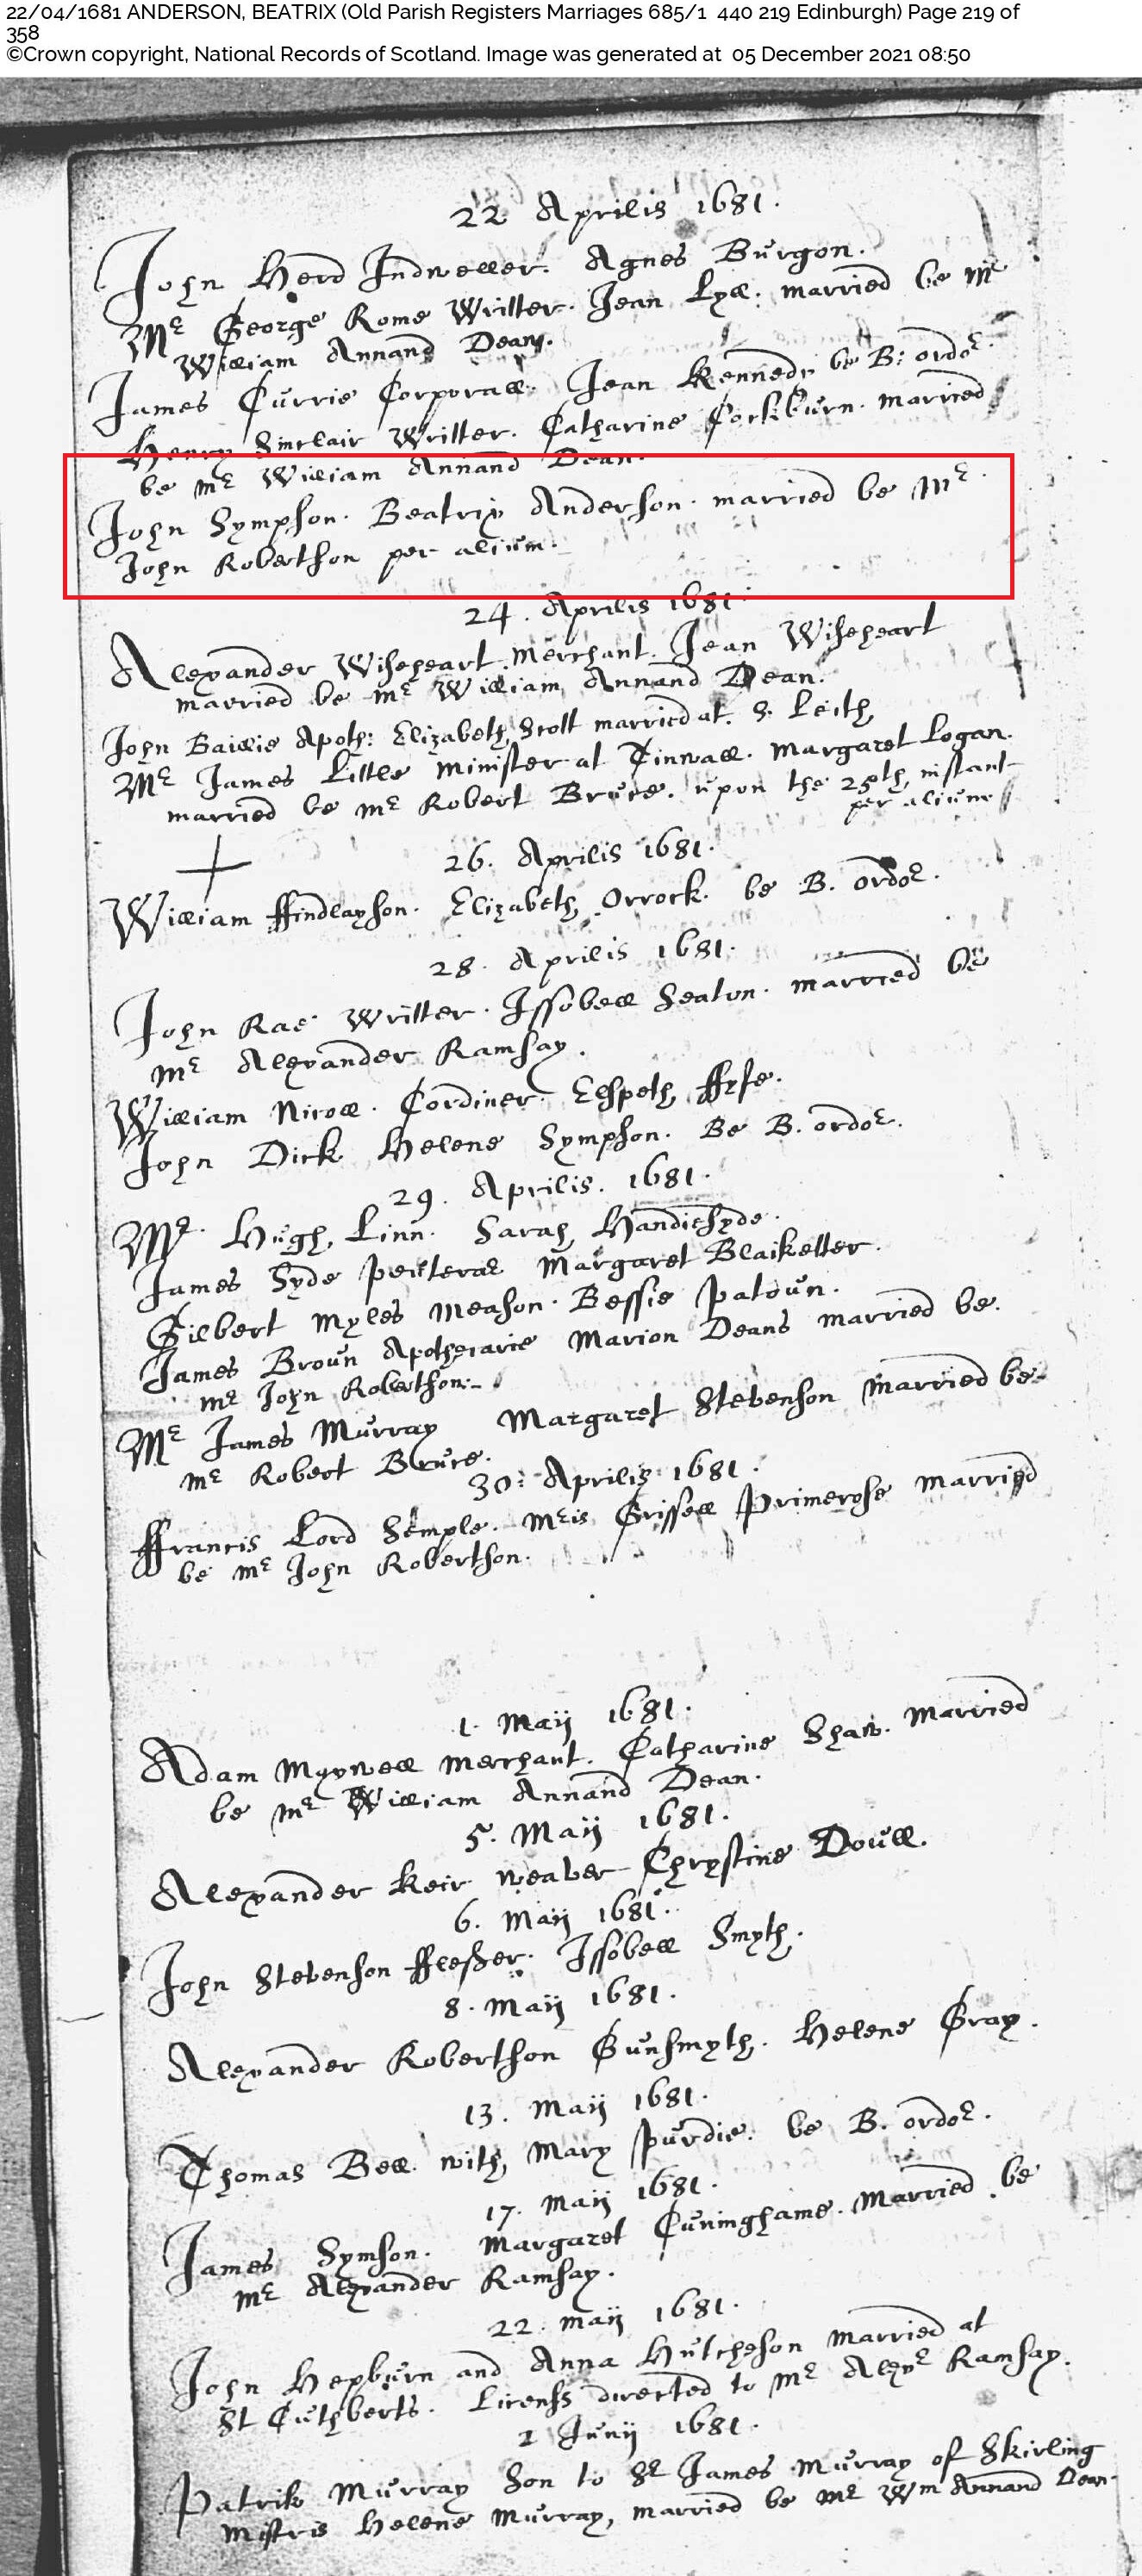 22/04/1681 ANDERSON, BEATRIX (Old Parish Registers Marriages 685/1 440 219 Edinburgh) Page 219 of
358
©Crown copyright, National Records of Scotland. Image was generated at 05 December 2021 08:50
22 Aprilis 1681.
John Herd Indweller. Agnes Burgon.
Mr George Rome Writter. Jean Lyll. married be Mr
William Annand Dean.
James Currie Corporall. Jean Kennedy be B: ordor.
Henry Sinclair Writter. Catharine Cockburn. married
be mr William Annand Dean.
John Sympson. Beatrix Anderson. married be Mr.
John Robertson per alium.
24. Aprilis 1681.
Alexander Wiseheart Merchant. Jean Wiseheart
married be mr William Annand Dean.
John Baillie Apoth: Elizabeth Scott married at. S. Leith
Mr James Little minister at Tinwall. Margaret Logan.
married be mr Robert Bruce. upon the 25th instant
per alium
26. Aprilis 1681.
William ffindlayson. Elizabeth Orrock. be B. ordor.
28. Aprilis 1681.
John Rae Writter. Issobell Seaton. married be
mr Alexander Ramsay.
William Nicoll. Cordiner. Elspeth ffyfe.
John Dick Helene Sympson. Be B. ordor.
29. Aprilis. 1681.
Mr. Hugh Linn. Sarah Handiesyde.
James Syde peuterar Margaret Blaiketter.
Gilbert Myles Meason. Bessie Patoun.
James Broun Apothecarie Marion Deans married be.
mr John Robertson.
Mr James Murray Margaret Stevenson married be
mr Robert Bruce.
30: Aprilis 1681.
ffrancis Lord Semple. Mris Grissell Primerose married
be mr John Robertson.
1. Maij 1681.
Adam Mayxwell merchant. Catharine Shaw. married
be mr William Annand Dean.
5. Maij 1681.
Alexander Keir weaver Chrystine Doull.
6. Maij 1681.
John Stevenson fflesher. Issobell Smyth.
8. Maij 1681.
Alexander Robertson Gunsmyth. Helene Gray.
13. Maij 1681.
Thomas Bell with Mary Purdie. be B. ordor.
17. Maij 1681.
James Symson. Margaret Cuninghame. Married be
mr Alexander Ramsay.
22. maij 1681.
John Hepburn and Anna Hutcheson married at
St Cuthberts. Licenss directed to mr Alexr Ramsay.
2 Junij 1681.
Patrik Murray Son to Sr James Murray of Skirling
Mistris Helene Murray, married be mr Wm Annand Dean.